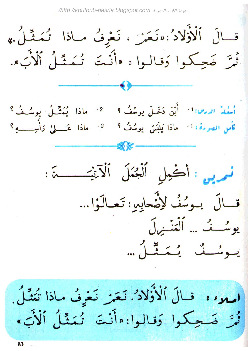 قَالَ ٱلْأَوْلَادُ: «نَعَمْ، نَعْرِفُ مَاذَا تُمَثِّلُ.»
ثُمَّ ضَحِكُوا وَقَالُوا: «أَنْتَ تُمَثِّلُ ٱلْأَبَ.»
أسئلة الدرس: 1- أَيْنَ دَخَلَ يُوسُفُ ؟ 2- مَاذَا يُمَثِّلُ يُوسُفُ ؟
3- مَاذَا عَلَى رَأْسِهِ ؟
تمرين : أَكْمِلِ ٱلْجُمَلَ ٱلْآتِيَةَ :
قَالَ يُوسُفُ لِأَصْحَابِهِ: تَعَالَوْا...
يُوسُفُ ... ٱلْمَنْزِلَ
يُوسُفُ يُمَثِّلُ ...
إملاء : قَالَ ٱلْأَوْلَادُ: نَعَمْ نَعْرِفُ مَاذَا تُمَثِّلُ.
ثُمَّ ضَحِكُوا وَقَالُوا: «أَنْتَ تُمَثِّلُ ٱلْأَبَ»